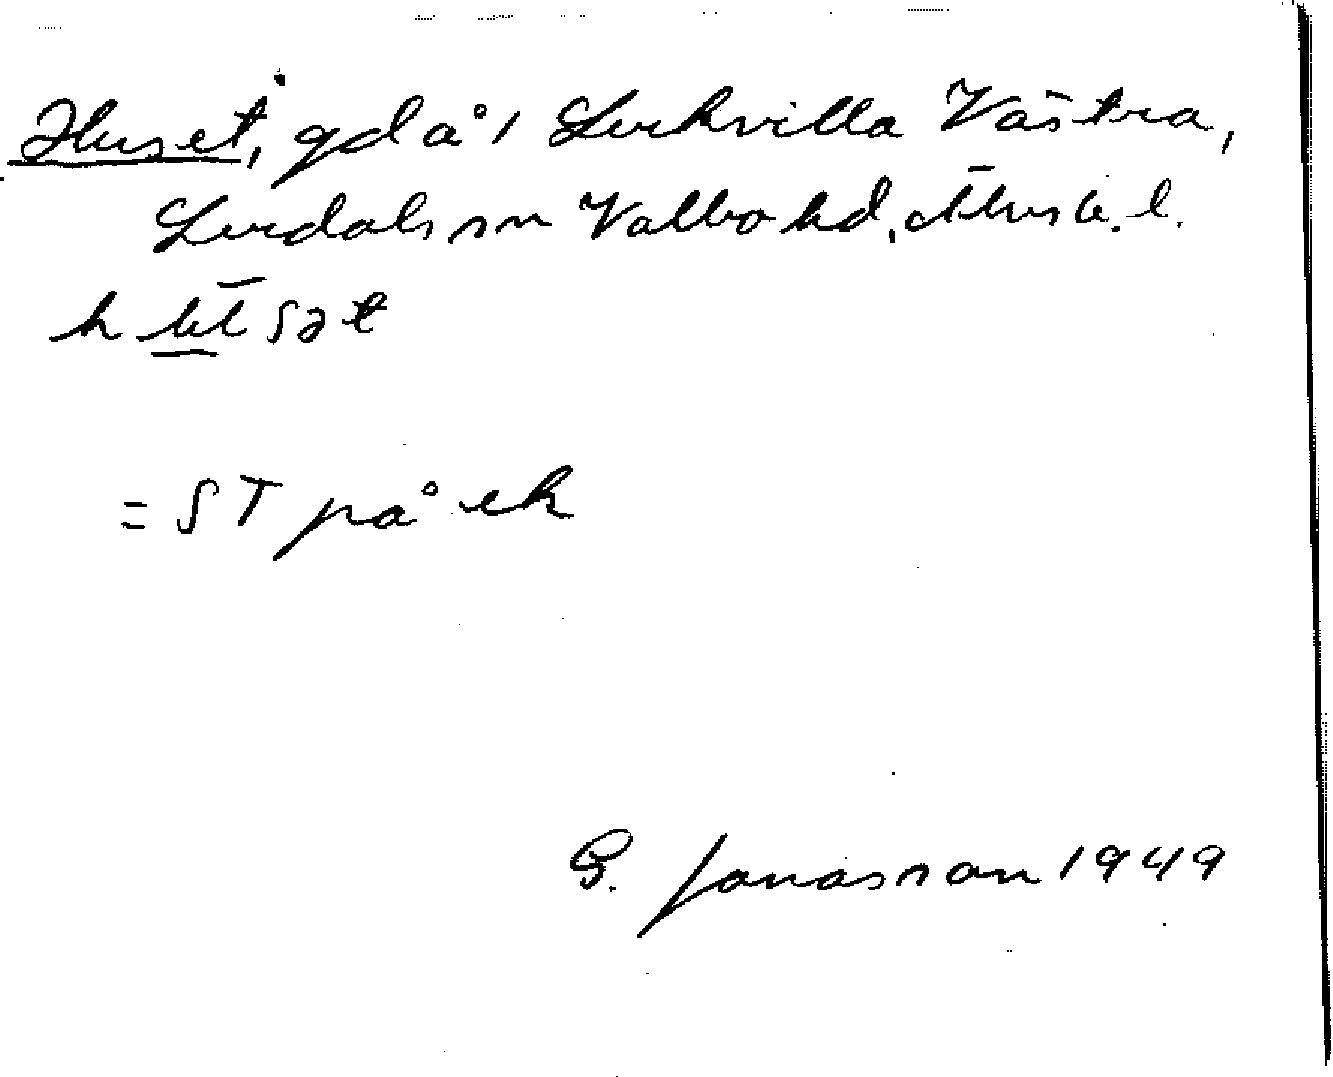 Huset, gd å 1 Lerkvilla Västra,
Lerdals sn Valbo hd, Älvsb. l.
= ST på ek
G. Jonasson 1949